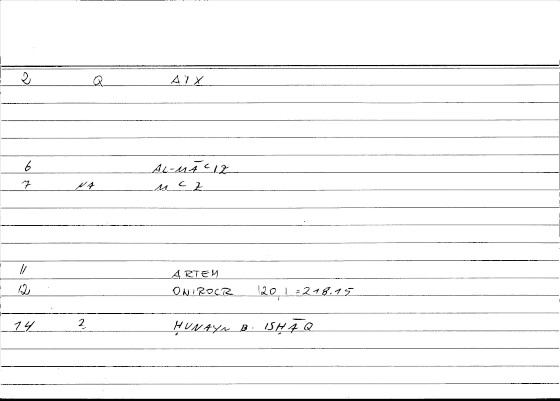 2 Q AYX
6 AL-MĀʿIZ
7 NA MʿZ
11 ARTEM
12 ONIROCR 120,1 = 218.15
14 2 ḤUNAYN B. ISḤĀQ